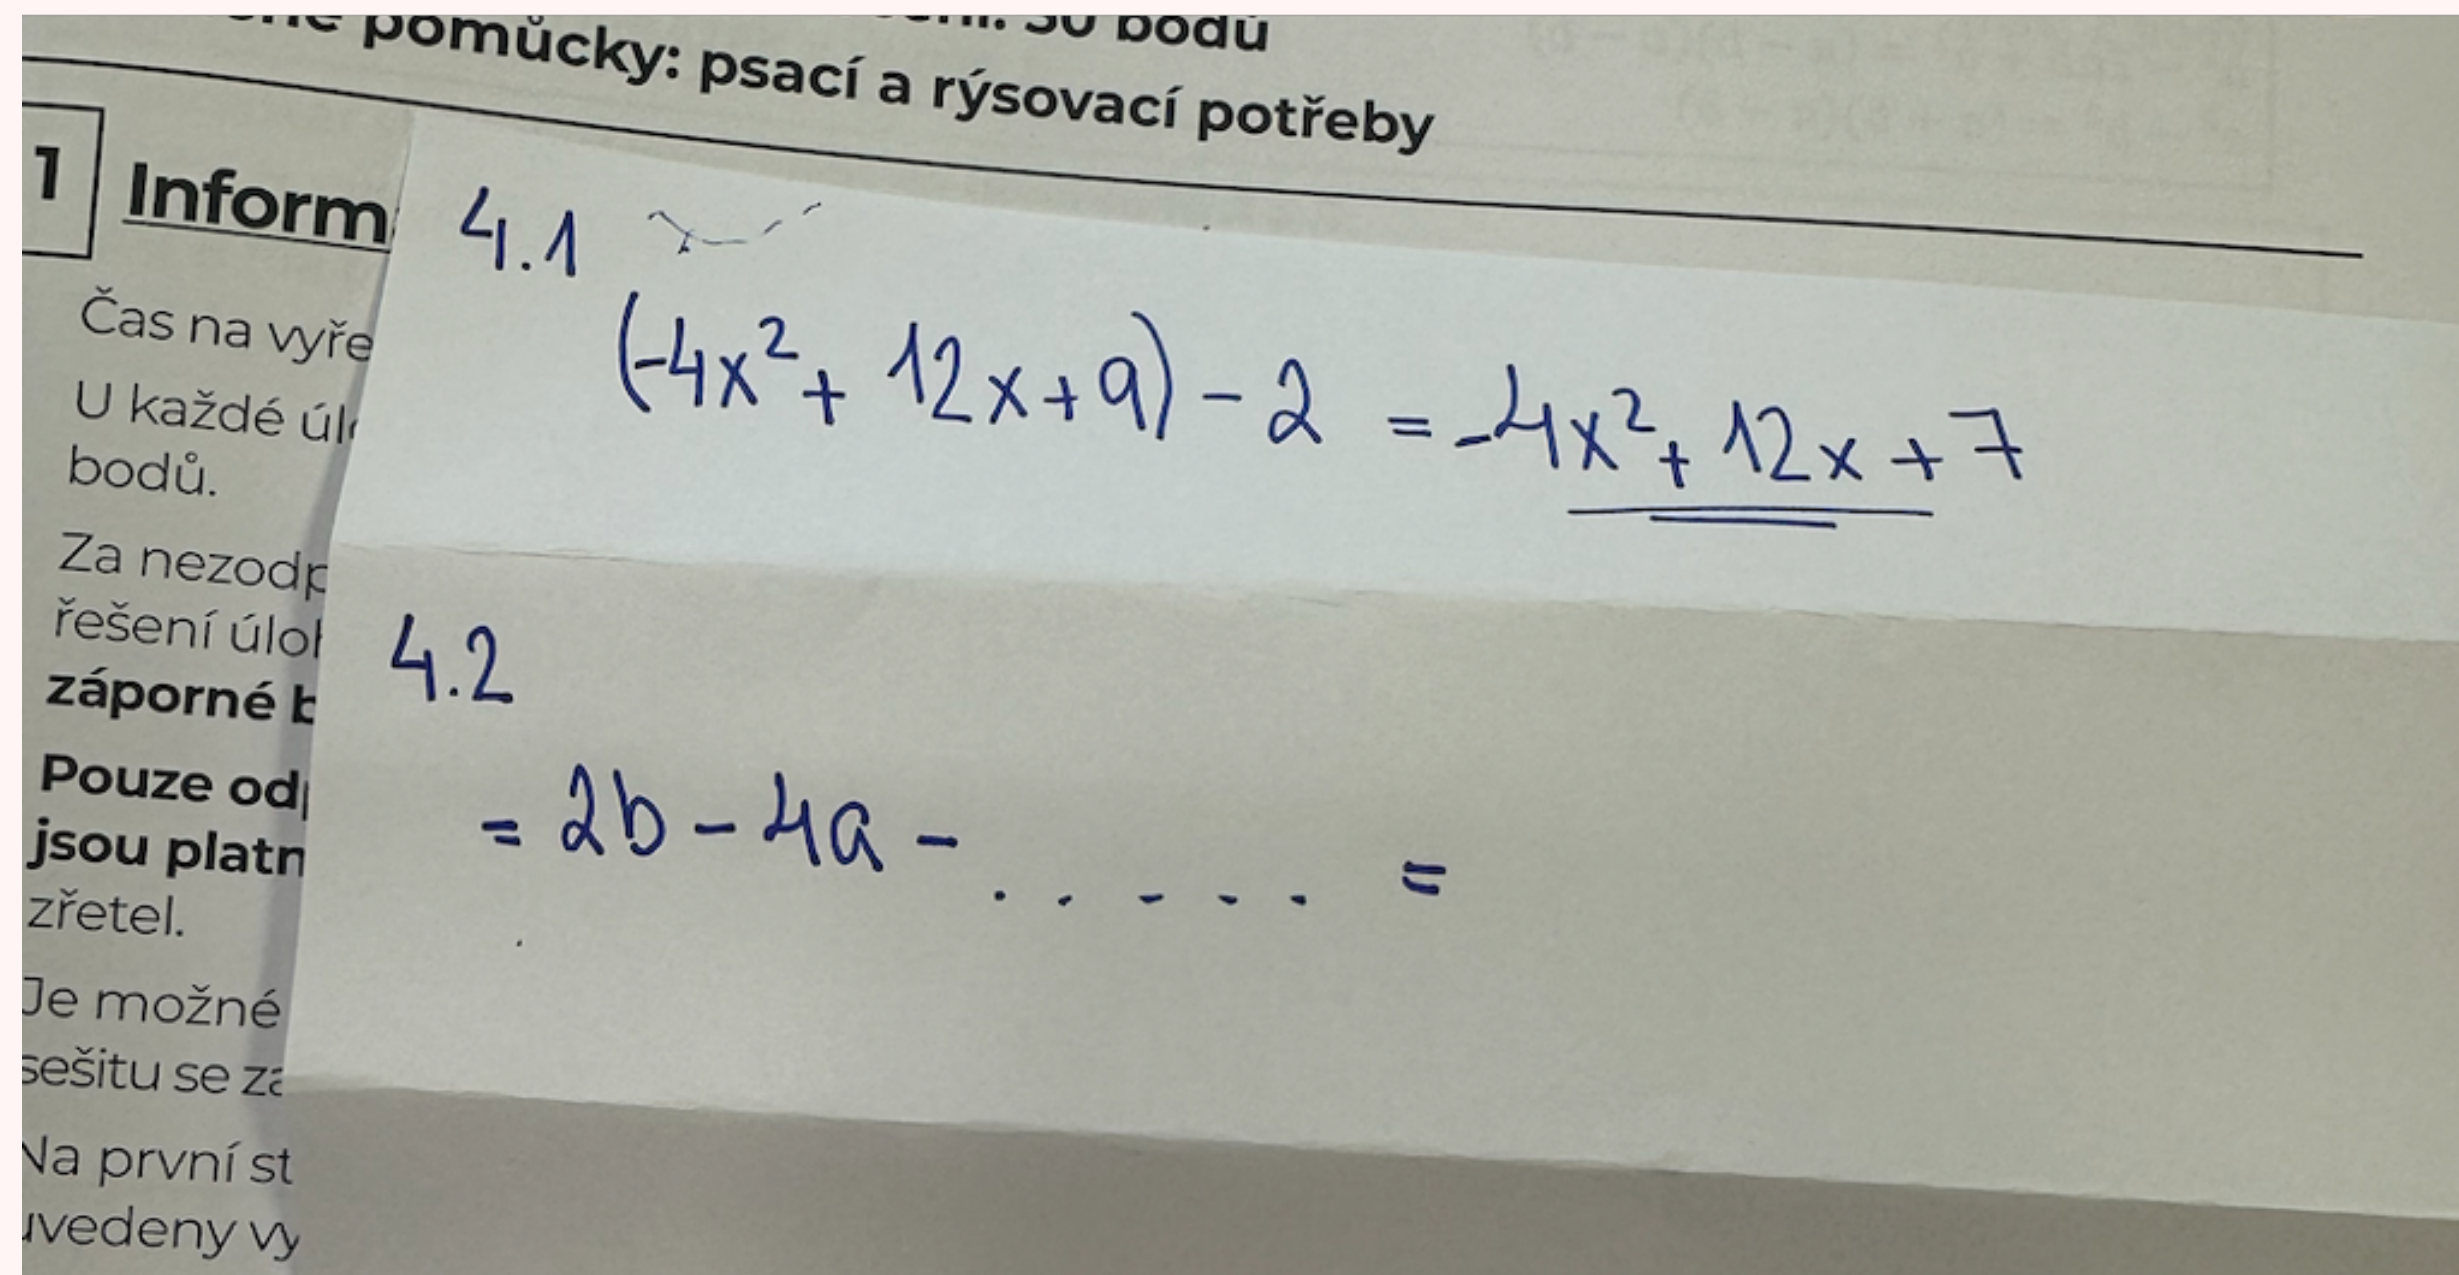 pomůcky: psací a rýsovací potřeby
1 Inform
Čas na vyře
U každé úl
bodů.
Za nezodp
řešení úloh
záporné b
Pouze od
jsou platn
zřetel.
Je možné
sešitu se za
Na první st
uvedeny vy
4.1
(-4x² + 12x + 9) - 2 = -4x² + 12x + 7
4.2
= 2b - 4a - . . . . . =